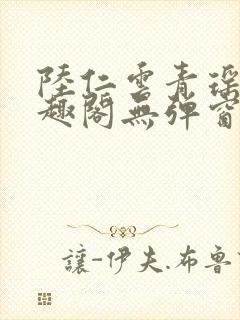 陸仁雲青瑤
趣閣無彈窗
讓-伊夫.布魯